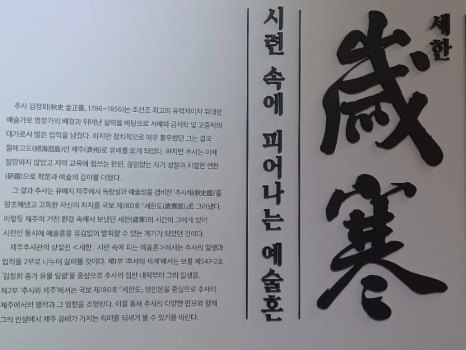 세한
歲寒
시련 속에 피어나는 예술혼
추사 김정희(秋史 金正喜, 1786~1856)는 조선조 최고의 유학자이자 위대한
예술가로 명문가의 배경과 뛰어난 실력을 바탕으로 서예와 금석학 및 고증학의
대가로서 많은 업적을 남겼다. 하지만 정치적으로 매우 불우했던 그는 결국
절해고도(絕海孤島)인 제주(濟州)로 유배를 오게 되었다. 하지만 추사는 이에
절망하지 않았고 지역 교육에 힘쓰는 한편, 끊임없는 자기 성찰과 치열한 연찬
(硏鑽)으로 학문과 예술의 깊이를 더했다.
그 결과 추사는 유배지 제주에서 독창성과 예술성을 겸비한 '추사체(秋史體)'를
창조해냈고 고독한 자신의 처지를 국보 제180호 「세한도」(歲寒圖)로 그려냈다.
이렇듯 제주의 거친 환경 속에서 보냈던 세한(歲寒)의 시간이 그에게 있어
시련인 동시에 예술혼을 유감없이 발휘할 수 있는 계기가 되었던 것이다.
제주추사관의 상설전 <세한 : 시련 속에 피는 예술혼>에서는 추사의 일생과
업적을 2부로 나누어 살펴볼 것이다. 제1부 '추사의 세계'에서는 보물 제547-2호
'김정희 종가 유물 일괄'을 중심으로 추사의 집안 내력부터 그의 일생을,
제2부 '추사와 제주'에서는 국보 제180호 「세한도」 영인본을 중심으로 추사의
제주에서의 행적과 그 영향을 조명한다. 이를 통해 추사의 다양한 면모와 함께
그의 인생에서 제주 유배가 가지는 의미를 되새겨 볼 수 있기를 바란다.